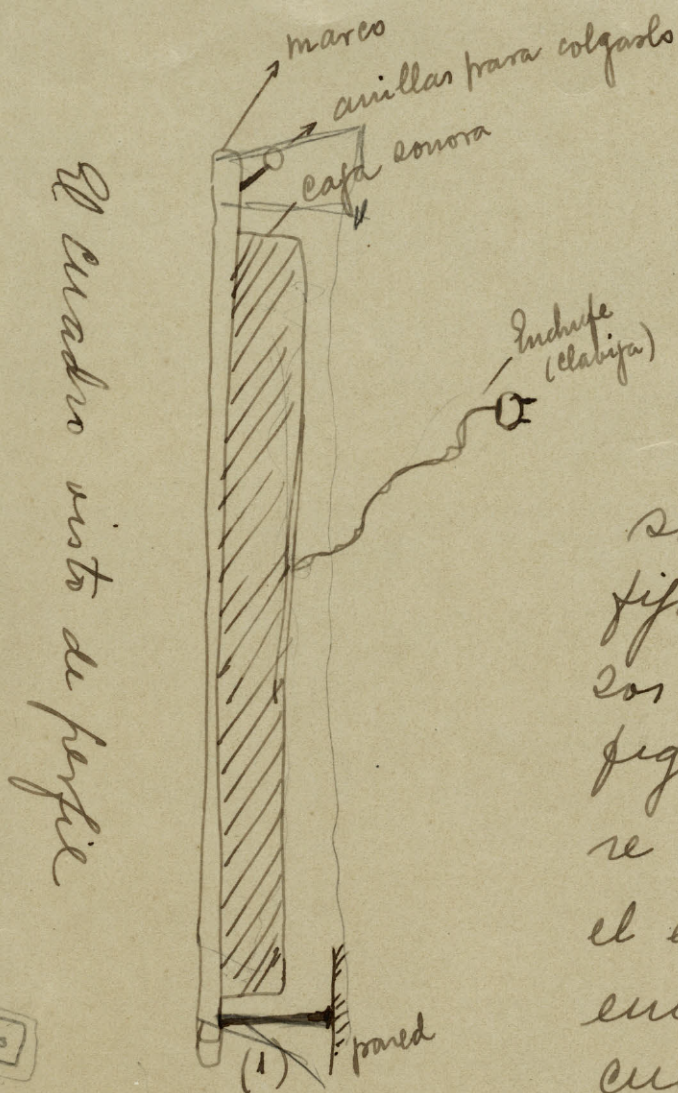 marco
anillas para colgarlo
caja sonora
Enchufe
(clabija)
El cuadro visto de perfil
pared
(1)
sos
re
el